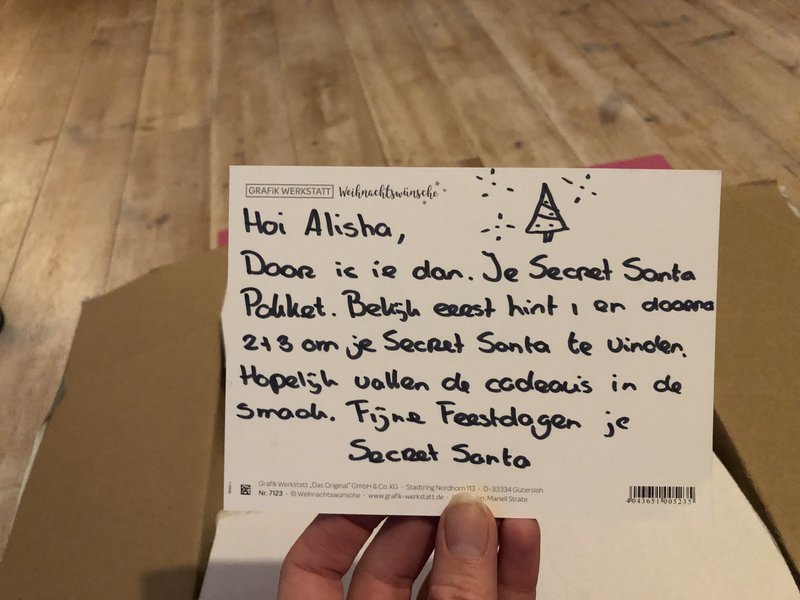 GRAFIK WERKSTATT Weihnachtswünsche
Hoi Alisha,
Daar is ie dan. Je Secret Santa
Pakket. Bekijk eerst hint 1 en daarna
2+3 om je Secret Santa te vinden.
Hopelijk vallen de cadeaus in de
smaak. Fijne Feestdagen je
Secret Santa
Grafik Werkstatt „Das Original“ GmbH & Co. KG · Stadtring Nordhorn 113 · D-33334 Gütersloh
Nr. 7123 · © Weihnachtswünsche · www.grafik-werkstatt.de · Mariell Strate
4 043651 005235